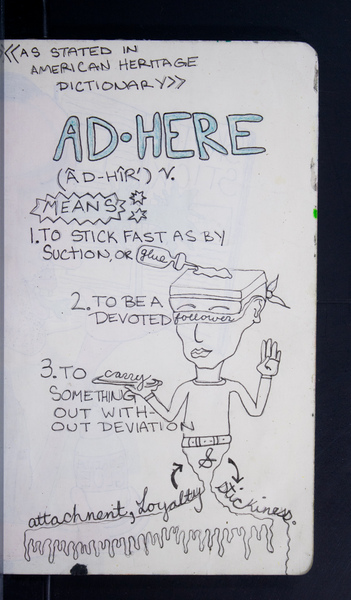 <<AS STATED IN
AMERICAN HERITAGE
DICTIONARY>>
AD•HERE
(ĂD-HÎR') v.
MEANS
1. TO STICK FAST AS BY
SUCTION, OR glue
2. TO BE A
DEVOTED follower
3. TO carry
SOMETHING
OUT WITH-
OUT DEVIATION
&
attachment, Loyalty
stickiness.